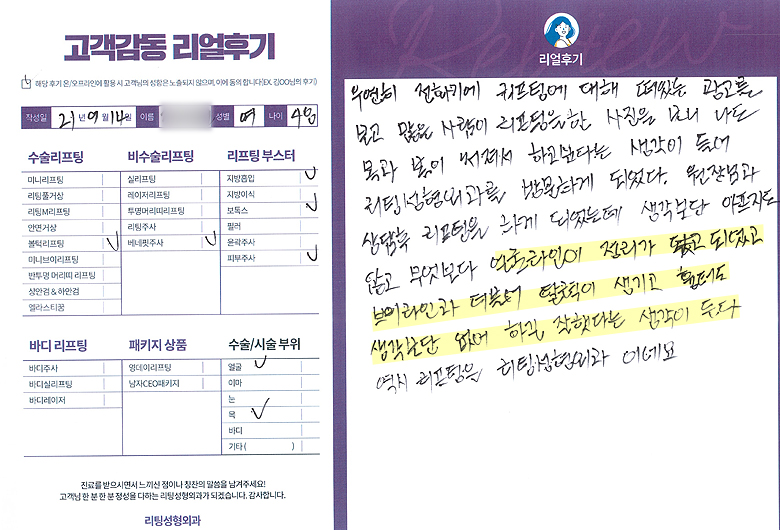 고객감동 리얼후기
해당 후기 온/오프라인에 활용 시 고객님의 성함은 노출되지 않으며, 이에 동의 합니다(EX. 김OO님의 후기)
작성일 21년 9월 14일 이름 성별 여 나이
수술리프팅
미니리프팅
리팅풀거상
리팅M리프팅
안면거상
볼턱리프팅
미니브이리프팅
반투명 머리띠 리프팅
상안검 & 하안검
엘라스티꿈
비수술리프팅
실리프팅
레이저리프팅
투명머리띠리프팅
리팅주사
베네핏주사
리프팅 부스터
지방흡입
지방이식
보톡스
필러
윤곽주사
피부주사
바디 리프팅
바디주사
바디실리프팅
바디레이저
패키지 상품
영데이리프팅
남자CEO패키지
수술/시술 부위
얼굴
이마
눈
목
바디
기타 ( )
진료를 받으시면서 느끼신 점이나 칭찬의 말씀을 남겨주세요!
고객님 한 분 한 분 정성을 다하는 리팅성형외과가 되겠습니다. 감사합니다.
리팅성형외과
리얼후기
우연히 전화기에 리프팅에 대해 떠있는 광고를
보고 많은 사람이 리프팅을한 사진을 보니 나도
목과 볼이 쳐져서 하고싶다는 생각이 들어
리팅성형외과를 방문하게 되었다. 원장님과
상담후 리프팅을 하게 되었는데 생각보단 아프지도
않고 무엇보다 턱라인이 정리가 되었고
브이라인과 더불어 탄력이 생기고
생각보단 없어 하길 잘했다는 생각이 든다
역시 리프팅은 리팅성형외과 이네요